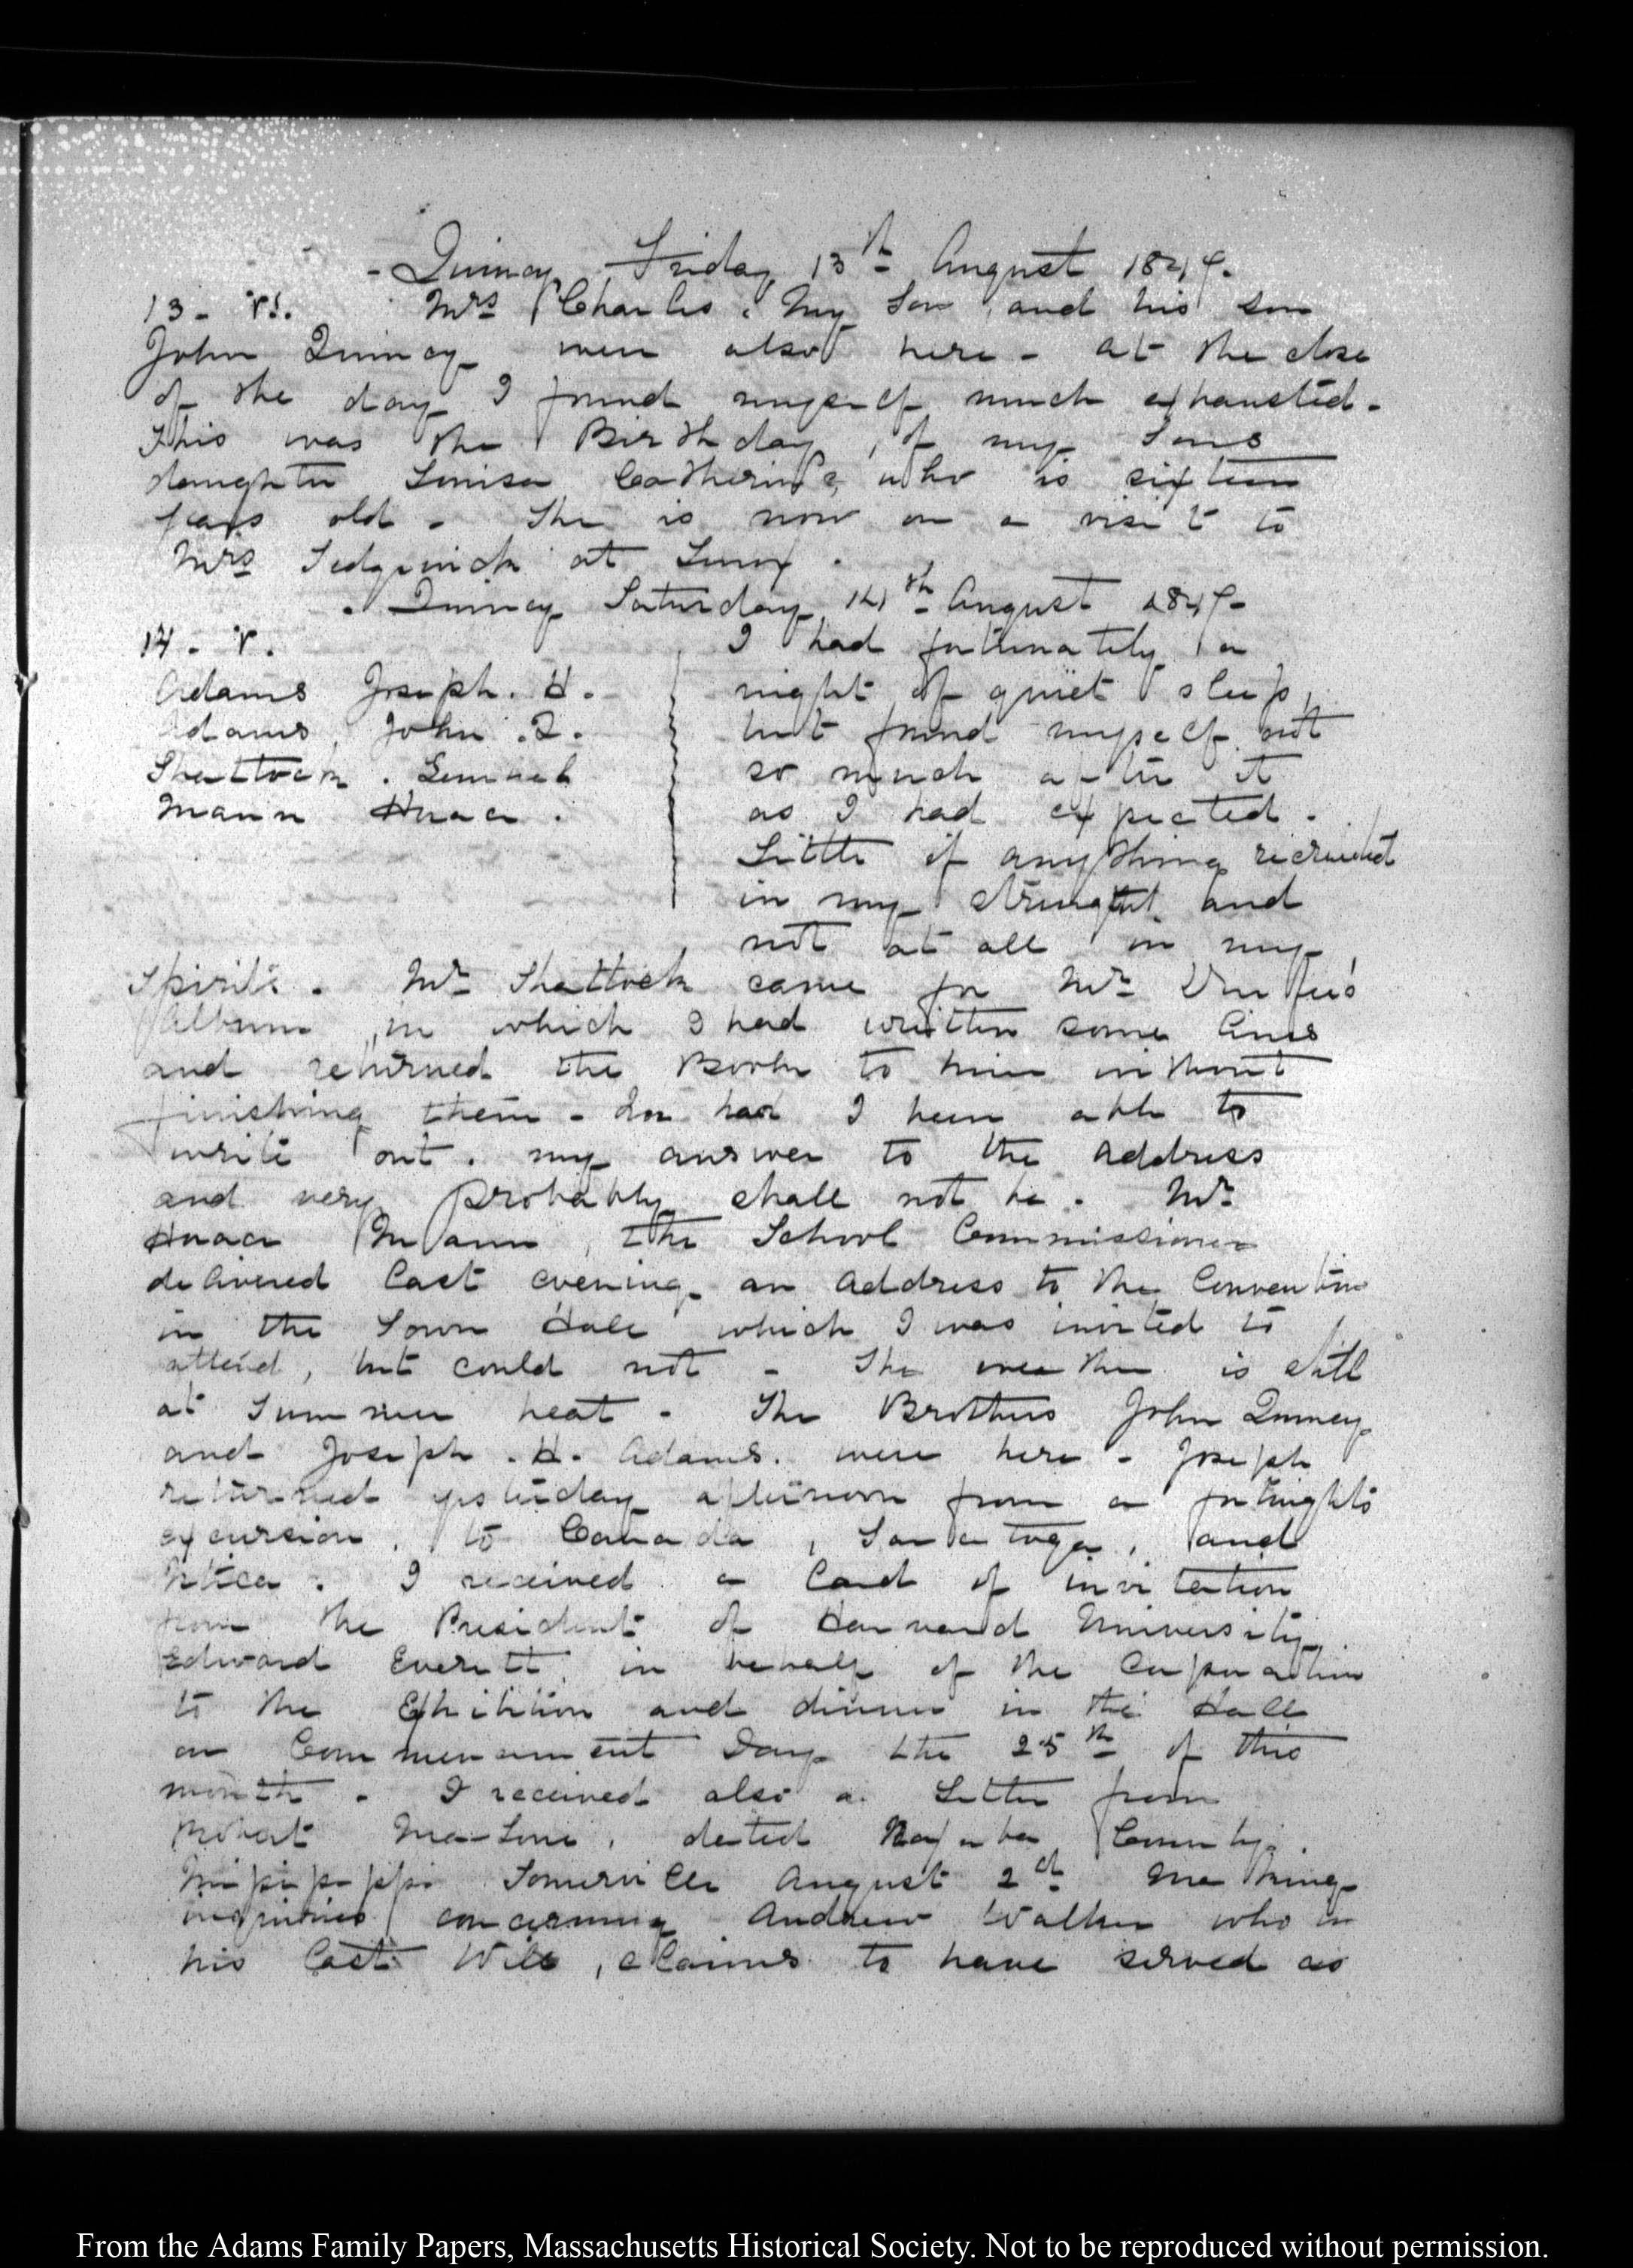 - Quincy Friday 13th August 1847.
13 - VI. Mrs Charles. My Son and his son
John Quincy were also here - at the close
of the day I found myself much exhausted -
This was the Birth day, of my Sons
daughter Louisa Catherine, who is sixteen
years old - She is now on a visit to
Mrs Sedgwick at Lenox.
. Quincy Saturday 14th August 1847-
14 - V. I had fortunately a
Adams Joseph. H. night of quiet sleep,
Adams, John. Q. but found myself not
Shattock. Lemuel so much after it
Mann Horace. as I had expected.
Little if anything recruited
in my strenght and
not at all in my
Spirits. Mr Shattock came for Mr
Album, in which I had written some lines
and returned the Book to him without
finishing them - Nor had I been able to
write out. my answer to the Address
and very probably shall not be. Mr
Horace Mann, the School Commissioner
delivered last evening an Address to the Convention
in the Town Hall which I was invited to
attend, but could not - The weather is still
at Summer heat - The Brothers John Quincy
and Joseph. H. Adams. were here - Joseph
returned yesterday afternoon from a fortnights
excursion, to Canada, Saratoga, and
Utica. I received a Card of invitation
from the President of Harvard University,
Edward Everett, in behalf of the Corporation
to the Exhibition and dinner in the Hall
on Commencement Day the 25th of this
month - I received also a Letter from
Robert dated County.
Mississippi Somerville August 2d
inquiries concerning Andrew Walker who in
his last Will, claims to have served as
From the Adams Family Papers, Massachusetts Historical Society. Not to be reproduced without permission.